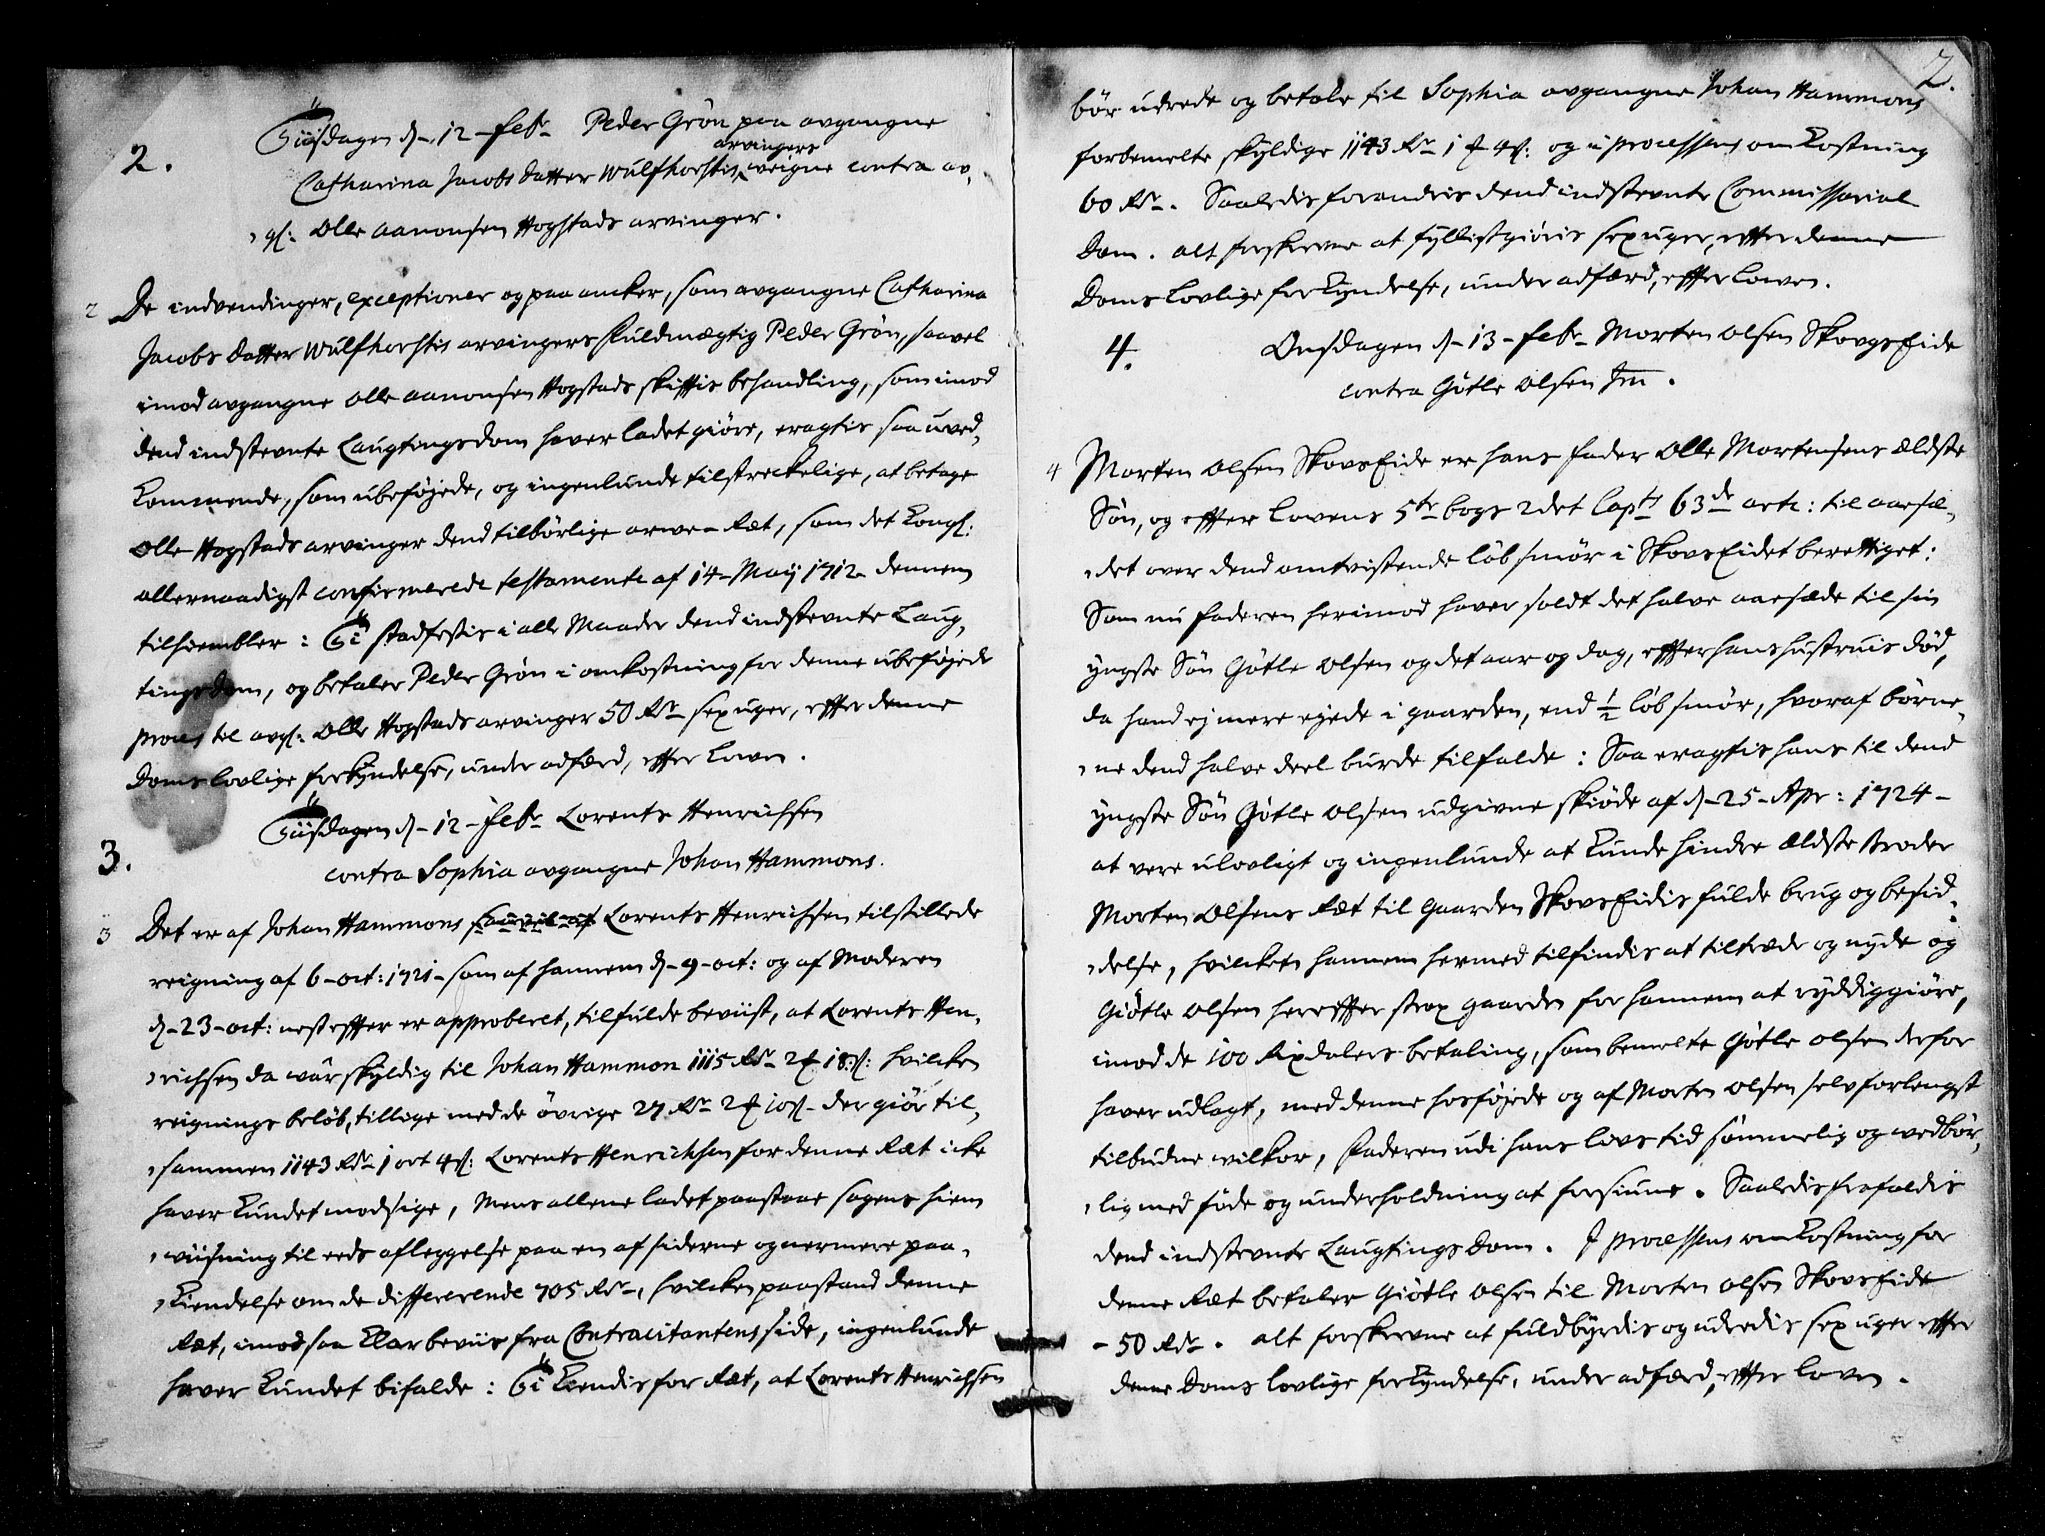 2.
Tiisdagen d. 12 Febr. Peder Grøn paa avgangne
Catharina Jacobs Datter Wulfhorstis arvingers weigne contra av-
g: Olle Aanonsen Hogstads arvinger.
2 De indvendinger, exceptioner og paa ancker, som avgangne Catharina
Jacobs Datter Wulfhorstis arvingers Fuldmægtig Peder Grøn, saavel
imod avgangne Olle Aanonsen Hogstads skiftis behandling, som imod
dend indstevnte Laugtings dom haver ladet giøre, eragtis saa uved-
kommende, som ubeføjede, og ingenlunde tilstreckelige, at betage
Olle Hogstads arvinger dend tilbørlige arwe-Ræt, som det Kongl:
allernaadigst confirmerede testamente af 14 Maij 1712 dennem
tilhoembler: Ti stadfestis i alle Maader dend indstevnte Laug-
tings dom, og betaler Peder Grøn i omkostning for denne ubeføjede
proces til avg: Olle Hogstads arvinger 50 Rdr sex uger, efter denne
Doms lovlige forkyndelse, under adfærd, efter Lowen.
3.
Tiisdagen d. 12 Febr. Lorents Henrichsen
contra Sophia avgangne Johan Hammons.
3 Det er af Johan Hammons Lorents Henrichsen tilstillede
reigning af 6 oct: 1721 som af hannem d. 9 oct: og af Moderen
d. 23 oct: nest efter er approberet, tilfulde beviist, at Lorents Hen-
richsen da wår skyldig til Johan Hammon 1115 Rdr 2 18 s: hvilcken
reignings beløb, tillige med de øvrige 27 Rdr 2 10 s der giør til-
sammen 1143 Rdr 1 ort 4 s: Lorents Henrichsen for denne Ræt icke
haver kundet modsige, Mens allene ladet paastaae sagens hiem
wiisning til eeds afleggelse paa en af siderne og nermere paa-
kiendelse om de differerende 705 Rdr, hvilcken paastand denne
Ræt, imod saa klar beviis fra Contracitantens side, ingenlunde
haver kundet bifalde: Ti kiendis for Ræt, at Lorents Henrichsen
2.
bør udrede og betale til Sophia avgangne Johan Hammons
forbemelte skyldige 1143 Rdr 1 4 s: og i processens omkostning
60 Rdr. Saaledis forandris dend indstevnte Commissarial
Dom. alt forskrevne at fyllistgiøris sex uger, efter denne
Doms lovlige forkyndelse, under adfærd, efter Lowen.
4.
Onsdagen d. 13 Febr. Morten Olsen Skovgs Eide
contra Gøtle Olsen
4 Morten Olsen Skovs Eide er hans fader Olle Mortensens ældste
Søn, og efter Lovens 5te bogs 2det Capts 63de artc: til aasæ-
det over dend omtvistende løb smør i Skovs Eidet berettiget:
Som nu faderen herimod haver soldt det halve aasæde til sin
yngste Søn Gøtle Olsen og det aar og dag, efter hans hustruis død,
da hand ej mere ejede i gaarden, end ½ løb smør, hvoraf børne-
ne dend halve deel burde tilfalde: Saa eragtis hans til dend
yngste Søn Gøtle Olsen udgivne skiøde af d. 25 Apr: 1724
at vere ulovligt og ingenlunde at kunde hindre ældste broder
Morten Olsens Ræt til gaarden Skovs Eidis fulde brug og besid-
delse, hvilcken hannem hermed tilfindis at tiltræde og nyde og
Giøtle Olsen herefter strax gaarden for hannem at ryddiggiøre,
imod de 100 Rixdalers betaling, som bemelte Gøtle Olsen derfor
haver udlagt, med denne hosføjede og af Morten Olsen selv forlengst
tilbudne wilkor, Faderen udi hans livs tid sømmelig og wedbør-
lig med føde og underholdning at forsiune. Saaledis frafaldis
dend indstevnte Laugtings dom. I processens omkostning for
denne Ræt betaler Giøtle Olsen til Morten Olsen Skovs Eide
50 Rdr. alt forskrevne at fuldbyrdis og udredis sex uger efter
denne Doms lovlige forkyndelse, under adfærd, efter Loven.